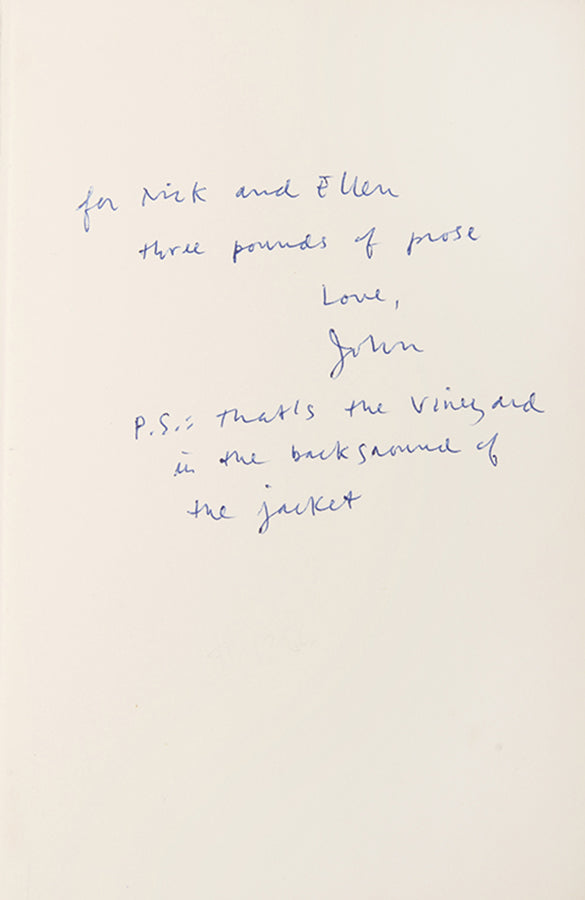 for Nick and Ellen
three pounds of prose
Love,
John
P.S.: that's the Vineyard
in the background of
the jacket